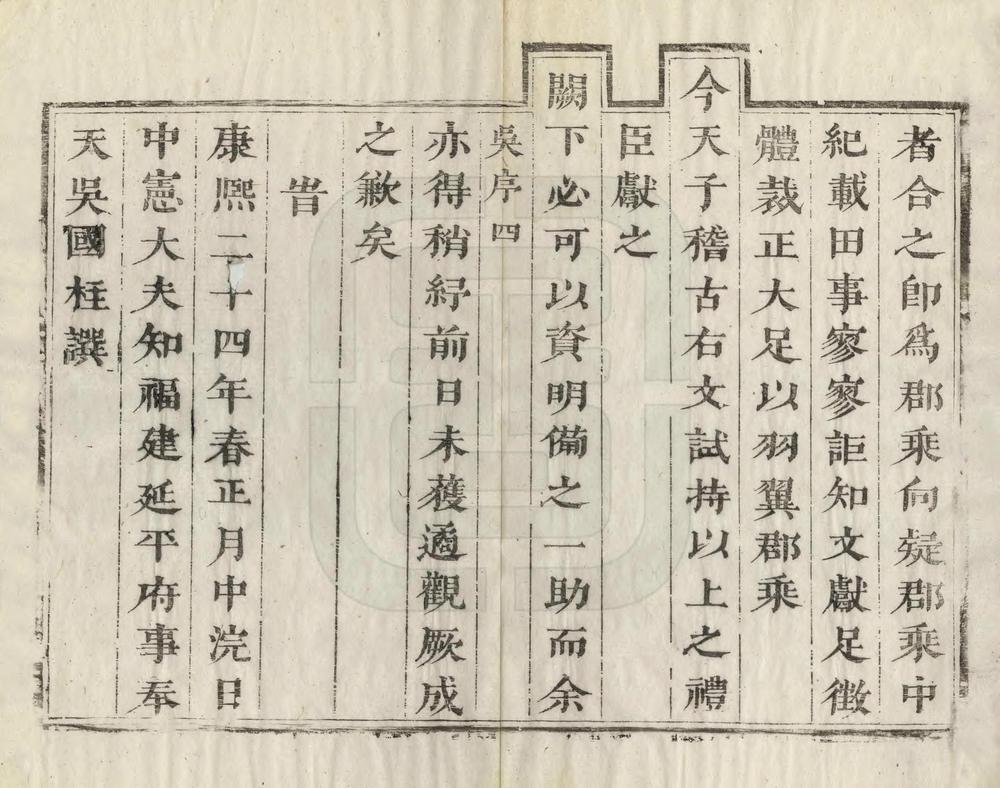 者合之卽爲郡乘向疑郡乘中
紀載田事寥寥詎知文獻足徵
體裁正大足以羽翼郡乘
今天子稽古右文試持以上之禮
臣獻之
闕下必可以資明備之一助而余
吳序四
亦得稍紓前日未獲遹觀厥成
之歉矣
旹
康熈二十四年春正月中浣日
中憲大夫知福建延平府事奉
天吳國柱譔